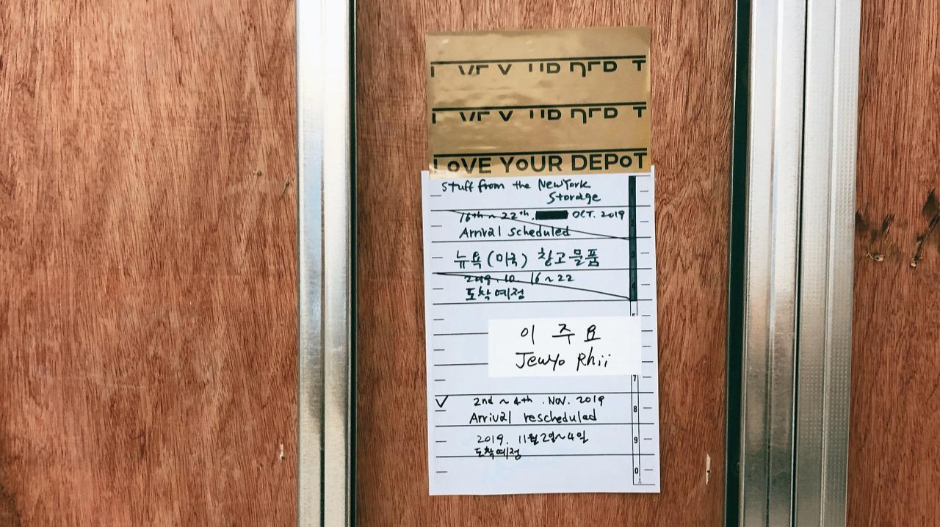 LOVE YOUR DEPOT
Stuff from the NewYork
Storage
16th ~ 22th, OCT. 2019
Arrival scheduled
뉴욕(미국) 창고물품
2019. 10 16~22
도착예정
이 주 요
Jewyo Rhii
7
2nd ~ 4th. NOV. 2019
Arrival rescheduled
8
2019. 11월 2일~4일
9
도착예정
0